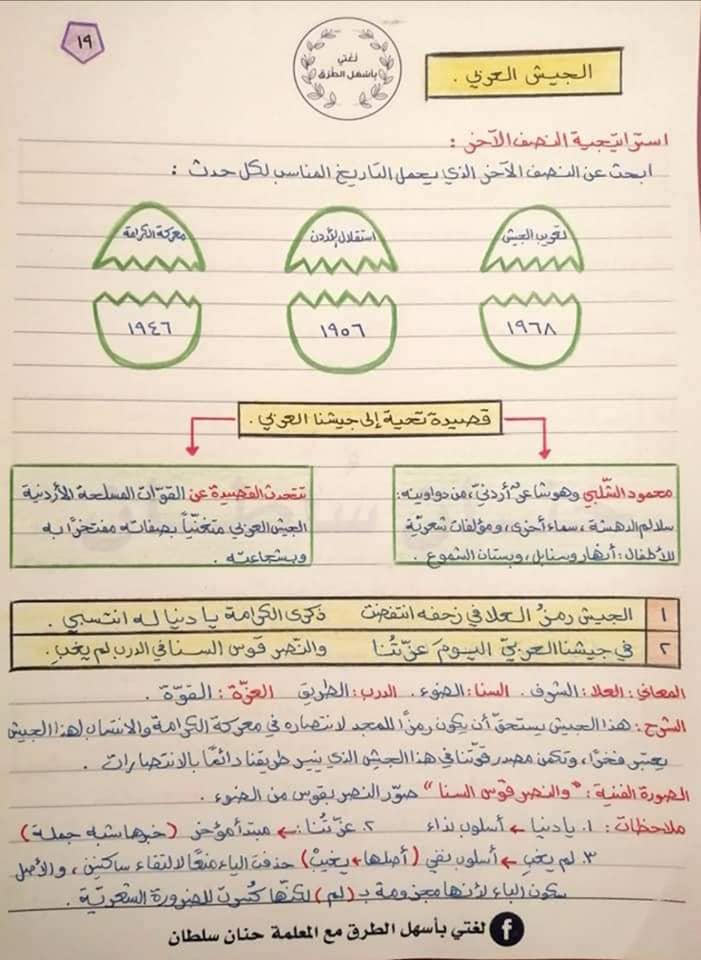 ١٩
لغتي
بأسهل الطرق
الجيش العربي .
استراتيجية النصف الآخر :
ابحث عن النصف الآخر الذي يحمل التاريخ المناسب لكل حدث :
تعريب الجيش
استقلال الأردن
معركة الكرامة
١٩٦٨
١٩٥٦
١٩٤٦
قصيدة تحية إلى جيشنا العربي .
محمود الشّلبي وهو شاعرٌ أردنيّ، من دواوينه:
سلالم الدهشة ، سماء أخرى، ومؤلفات شعريّة
للأطفال: أنهار وسنابل ، وبستان الشموع .
تتحدث القصيدة عن القوّات المسلحة الأردنية
الجيش العربي متغنّياً بصفاته مفتخرًا به
وبشجاعته .
١ الجيش رمزُ العلا في زحفه انتفضت ذكرى الكرامة يا دنيا له انتسبي .
٢ في جيشنا العربيّ اليومَ عزّتُنا والنّصر قوس السنا في الدرب لم يغبِ.
المعاني: العلا: الشرف. السنا: الضوء. الدرب: الطريق العزّة: القوّة.
الشرح: هذا الجيش يستحقّ أن يكون رمزًا للمجد لانتصاره في معركة الكرامة والانتساب لهذا الجيش
يعتبر فخرًا، وتكمن مصدر قوّتنا في هذا الجيش الذي ينير طريقنا دائمًا بالانتصارات .
الصورة الفنية: "والنصر قوس السنا" صوّر النصر بقوس من الضوء .
ملاحظات: ١. يا دنيا ← أسلوب نداء ٢. عزّتُنا: ← مبتدأ مؤخر (خبرها شبه جملة)
٣. لم يغبِ ← أسلوب نفي (أصلها ← يغيبْ) حذفت الياء منعًا لالتقاء ساكنين ، والأصل
سكون الباء لأنها مجزومة بـ (لم) لكنّها كُسرت للضرورة الشعريّة .
لغتي بأسهل الطرق مع المعلمة حنان سلطان